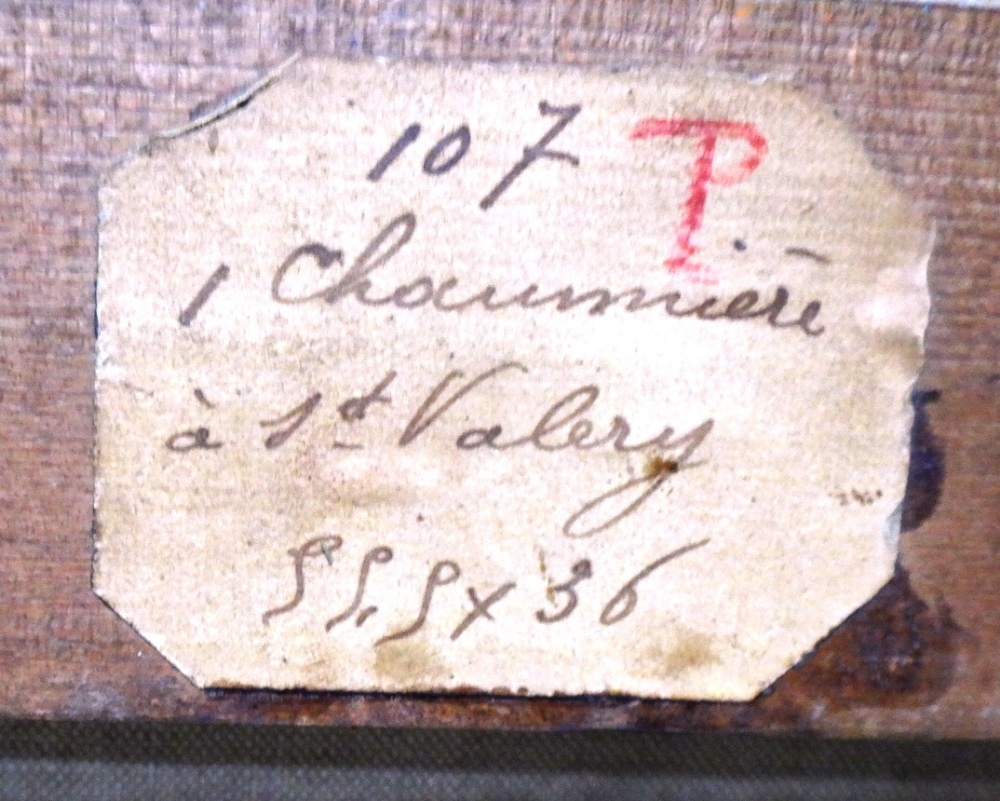 107 P
1 Chaumière
à St Valery
55,5 x 36